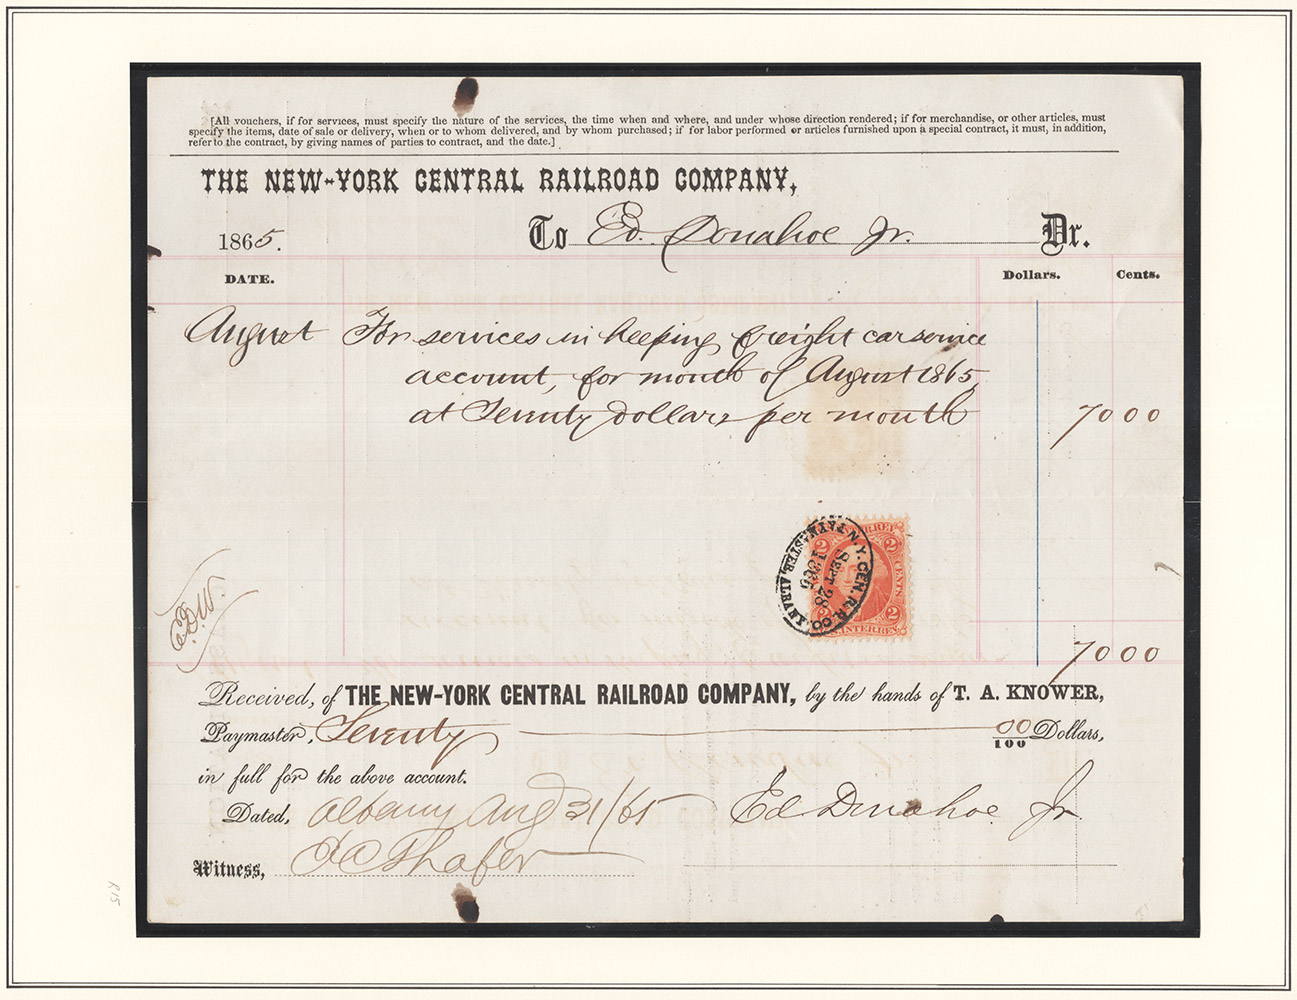 [All vouchers, if for services, must specify the nature of the services, the time when and where, and under whose direction rendered; if for merchandise, or other articles, must
specify the items, date of sale or delivery, when or to whom delivered, and by whom purchased; if for labor performed or articles furnished upon a special contract, it must, in addition,
refer to the contract, by giving names of parties to contract, and the date.]
THE NEW-YORK CENTRAL RAILROAD COMPANY,
1865. To Ed. Donahoe Jr. Dr.
DATE. Dollars. Cents.
August For services in keeping freight car service
account, for month of August 1865,
at Seventy dollars per month 70 00
U.S. INTER. REV.
2 2
CENTS
2 2
U.S. INTER. REV.
N.Y. CEN. R.R. CO.
SEPT 28
PAYMASTER, ALBANY
E.D.W.
70 00
Received, of THE NEW-YORK CENTRAL RAILROAD COMPANY, by the hands of T. A. KNOWER,
Paymaster, Seventy 00/100 Dollars,
in full for the above account.
Dated, Albany Aug 31/65 Ed. Donahoe Jr.
Witness,
R15